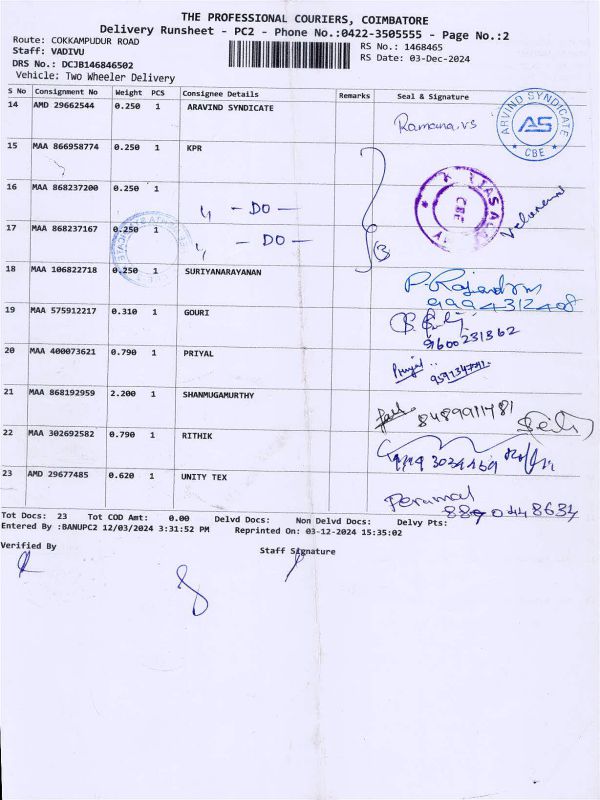 THE PROFESSIONAL COURIERS, COIMBATORE
Delivery Runsheet - PC2 - Phone No.:0422-3505555 - Page No.:2
Route: COKKAMPUDUR ROAD
Staff: VADIVU
DRS No.: DCJB146846502
Vehicle: Two Wheeler Delivery
RS No.: 1468465
RS Date: 03-Dec-2024
S No Consignment No Weight PCS Consignee Details Remarks Seal & Signature
14 AMD 29662544 0.250 1 ARAVIND SYNDICATE Ramana.vs
ARVIND SYNDICATE AS * CBE *
15 MAA 866958774 0.250 1 KPR
16 MAA 868237200 0.250 1 " - DO -
CBE
17 MAA 868237167 0.250 1 " - DO - 3
18 MAA 106822718 0.250 1 SURIYANARAYANAN
9994312408
19 MAA 575912217 0.310 1 GOURI
9600231362
20 MAA 400073621 0.790 1 PRIYAL
21 MAA 868192959 2.200 1 SHANMUGAMURTHY
8489911781
22 MAA 302692582 0.790 1 RITHIK
23 AMD 29677485 0.620 1 UNITY TEX
Perumal
Tot Docs: 23 Tot COD Amt: 0.00 Delvd Docs: Non Delvd Docs: Delvy Pts:
Entered By :BANUPC2 12/03/2024 3:31:52 PM Reprinted On: 03-12-2024 15:35:02
Verified By Staff Signature